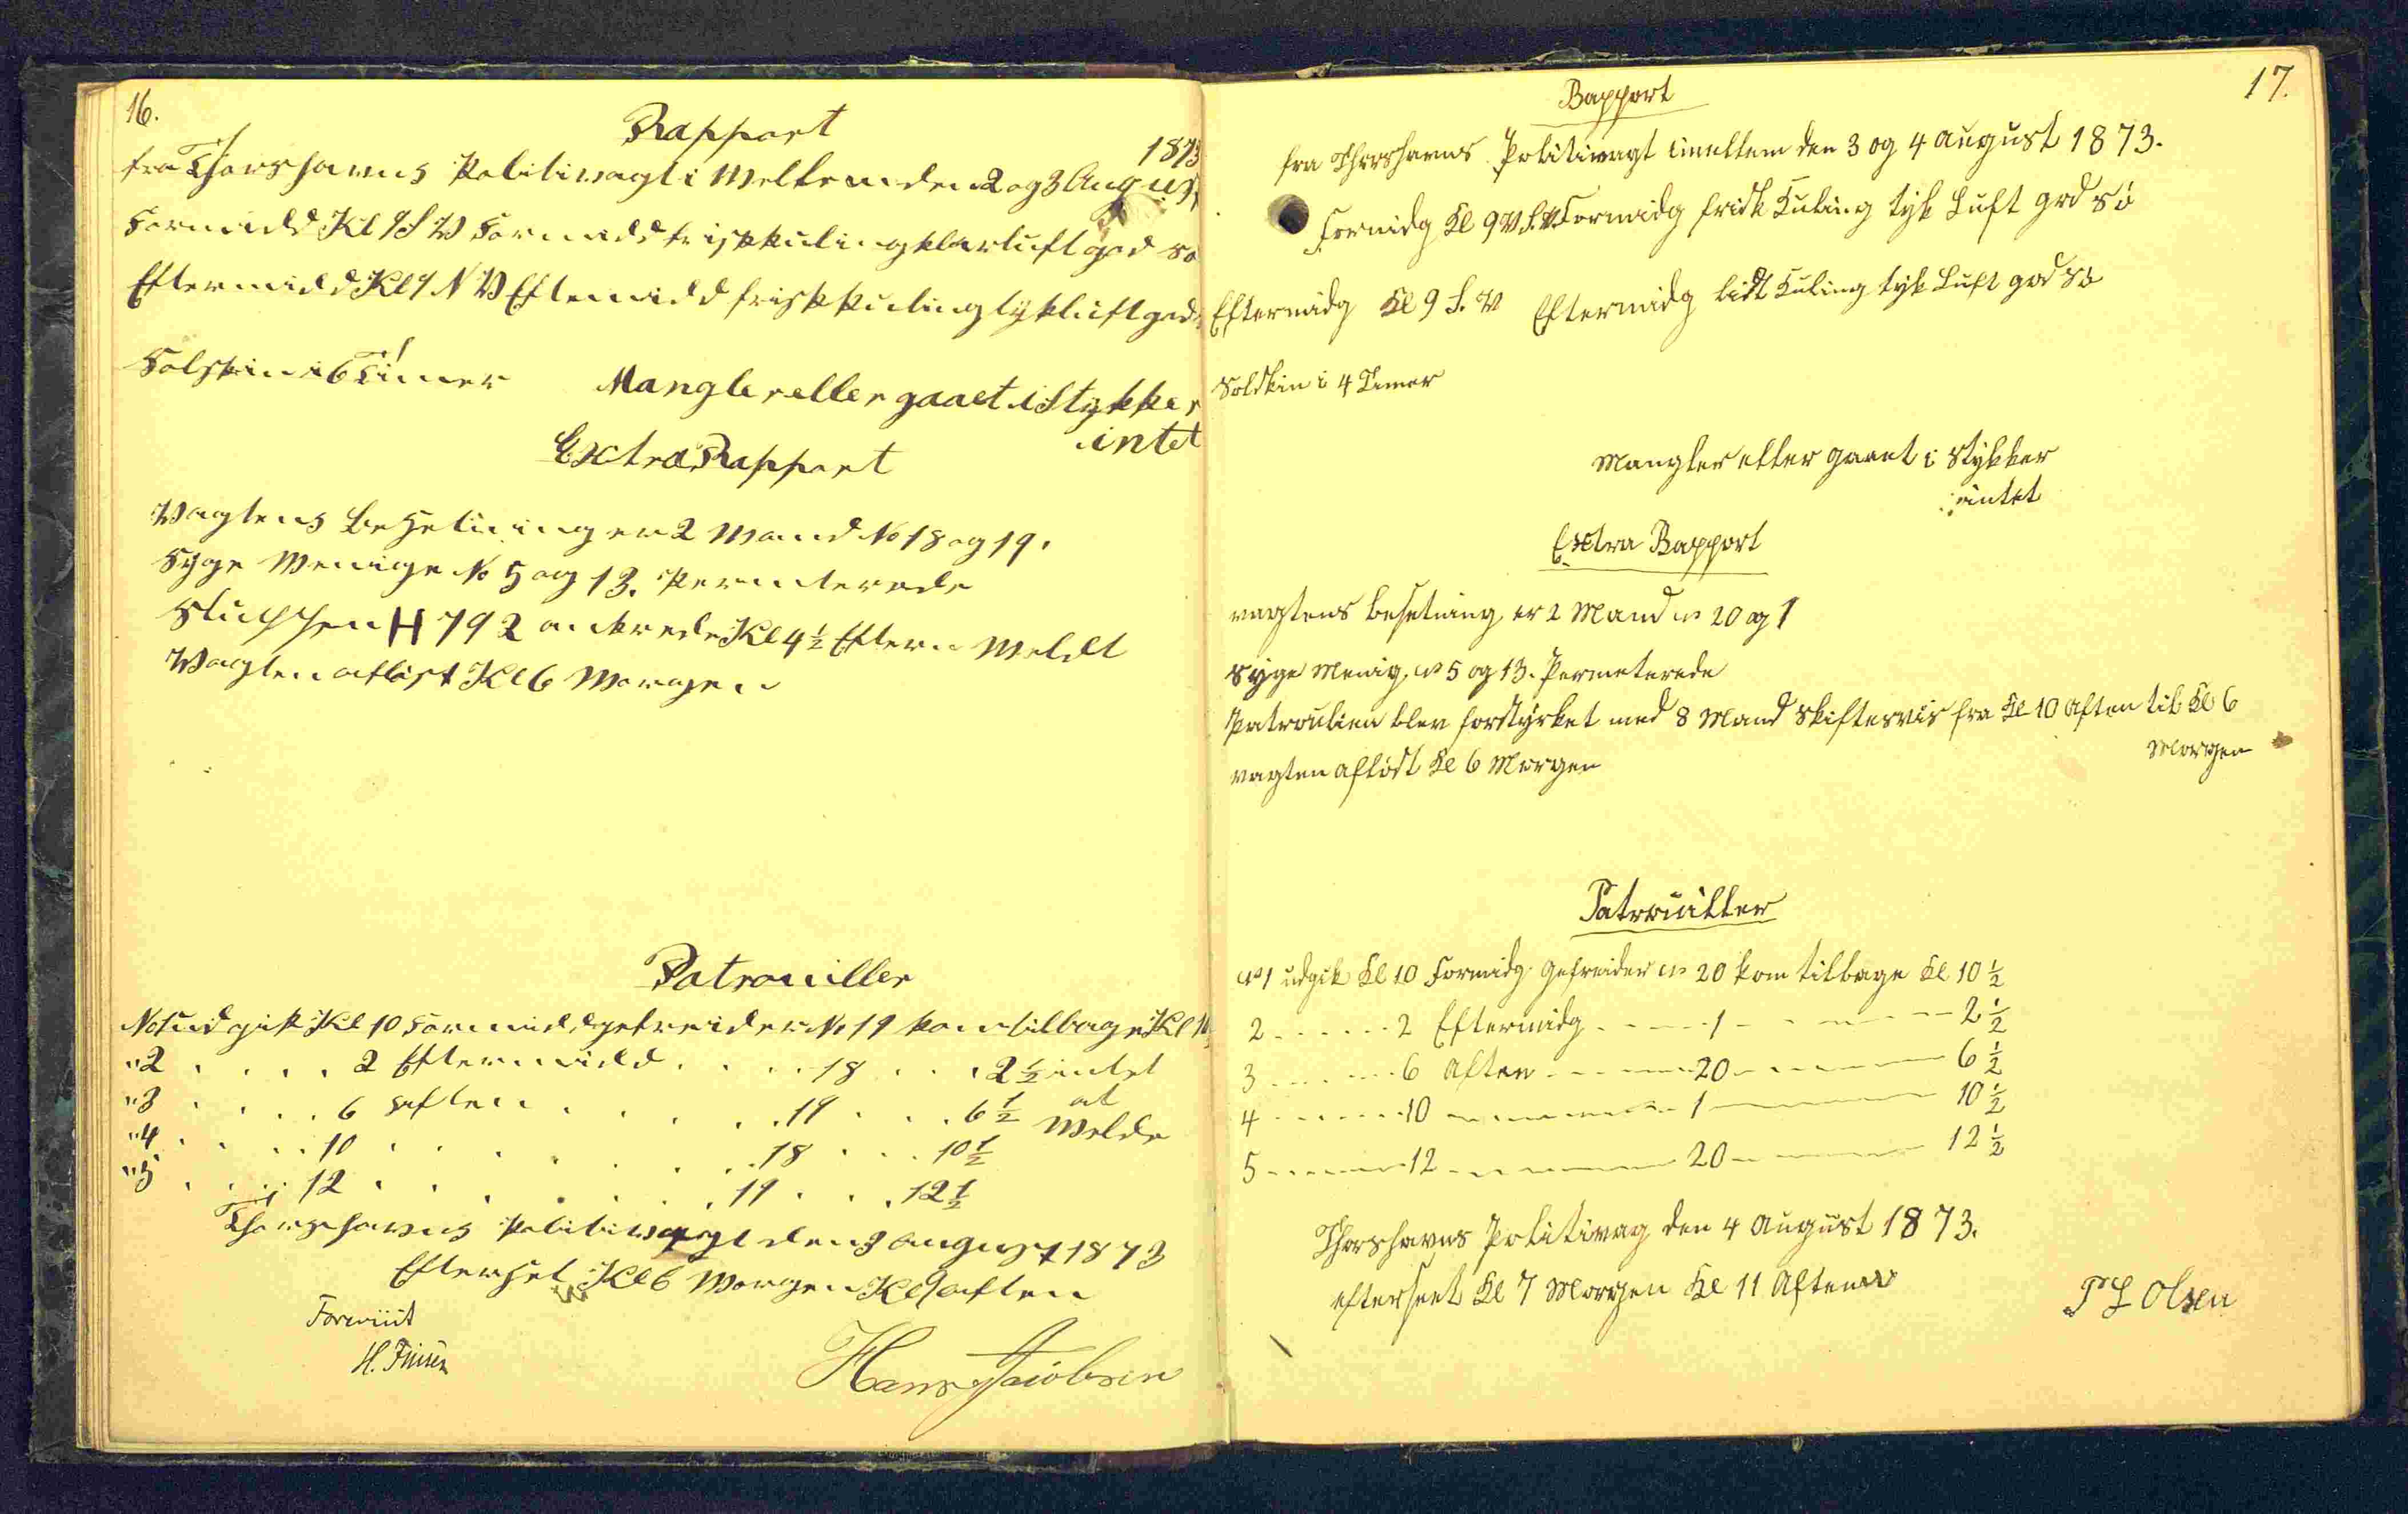 16.
Rapport
1873
fra Thorshavns Politivagt i Mellem den 2 og 3 August
Formidd Kl 9 S V Formidd frisk kuling klar luft god Sø
Eftermidd Kl 9 N V Eftermidd frisk kuling tyk luft god
Solskin i 6 Timer
Mangler eller gaaet i Stykker
intet
Extra Rapport
Vagtens Besetning er 2 Mand No 18 og 19.
Syge Menige No 5 og 13. Permiterede
Sluppen H 792 ankrede Kl 4 ½ Efterm Meldt
Vagten afløst Kl 6 Morgen
Patrouiller
No 1 udgik Kl 10 Formidd gefreider No 19 kom tilbage Kl 10
" 2 . . . . 2 Eftermidd . . . . 18 . . . 2 ½ intet
" 3 . . . . 6 Aften . . . . . 19 . . . 6 ½ at
" 4 . . . . 10 . . . . . . 18 . . . 10 ½ Melde
" 5 . . . . 12 . . . . . . 19 . . . 12 ½
Thorshavns Politivagt den 3 August 1873
Efterset Kl 6 Morgen Kl 9 aften
Foreviist
H. Finsen
Hans Jacobsen
17.
Rapport
fra Thorshavns Politivagt imellem den 3 og 4 August 1873.
Formidg Kl 9 V.S.V. Formidg frisk Kuling tyk Luft god Sø
Eftermidg Kl 9 S.V Eftermidg lidt Kuling tyk Luft god Sø
Solskin i 4 Timer
Mangler eller gaaet i Stykker
intet
Extra Rapport
Vagtens besetning er 2 Mand No 20 og 1
Syge Menig. No 5 og 13. Permeterede
Patroulien blev forstyrket med 8 Mand Skiftesvis fra Kl 10 Aften til Kl 6
Morgen
Vagten afløst Kl 6 Morgen
Patrouiller
No 1 udgik Kl 10 Formidg Gefreider No 20 kom tilbage Kl 10 ½
2 - - - - - - 2 Eftermidg - - - - - 1 - - - - - - 2 ½
3 - - - - - - 6 Aften - - - - - 20 - - - - - - 6 ½
4 - - - - - - 10 - - - - - - - 1 - - - - - - 10 ½
5 - - - - - - 12 - - - - - - - 20 - - - - - - 12 ½
Thorshavns Politivag den 4 August 1873.
efterseet Kl 7 Morgen Kl 11 Aften
P L Olsen